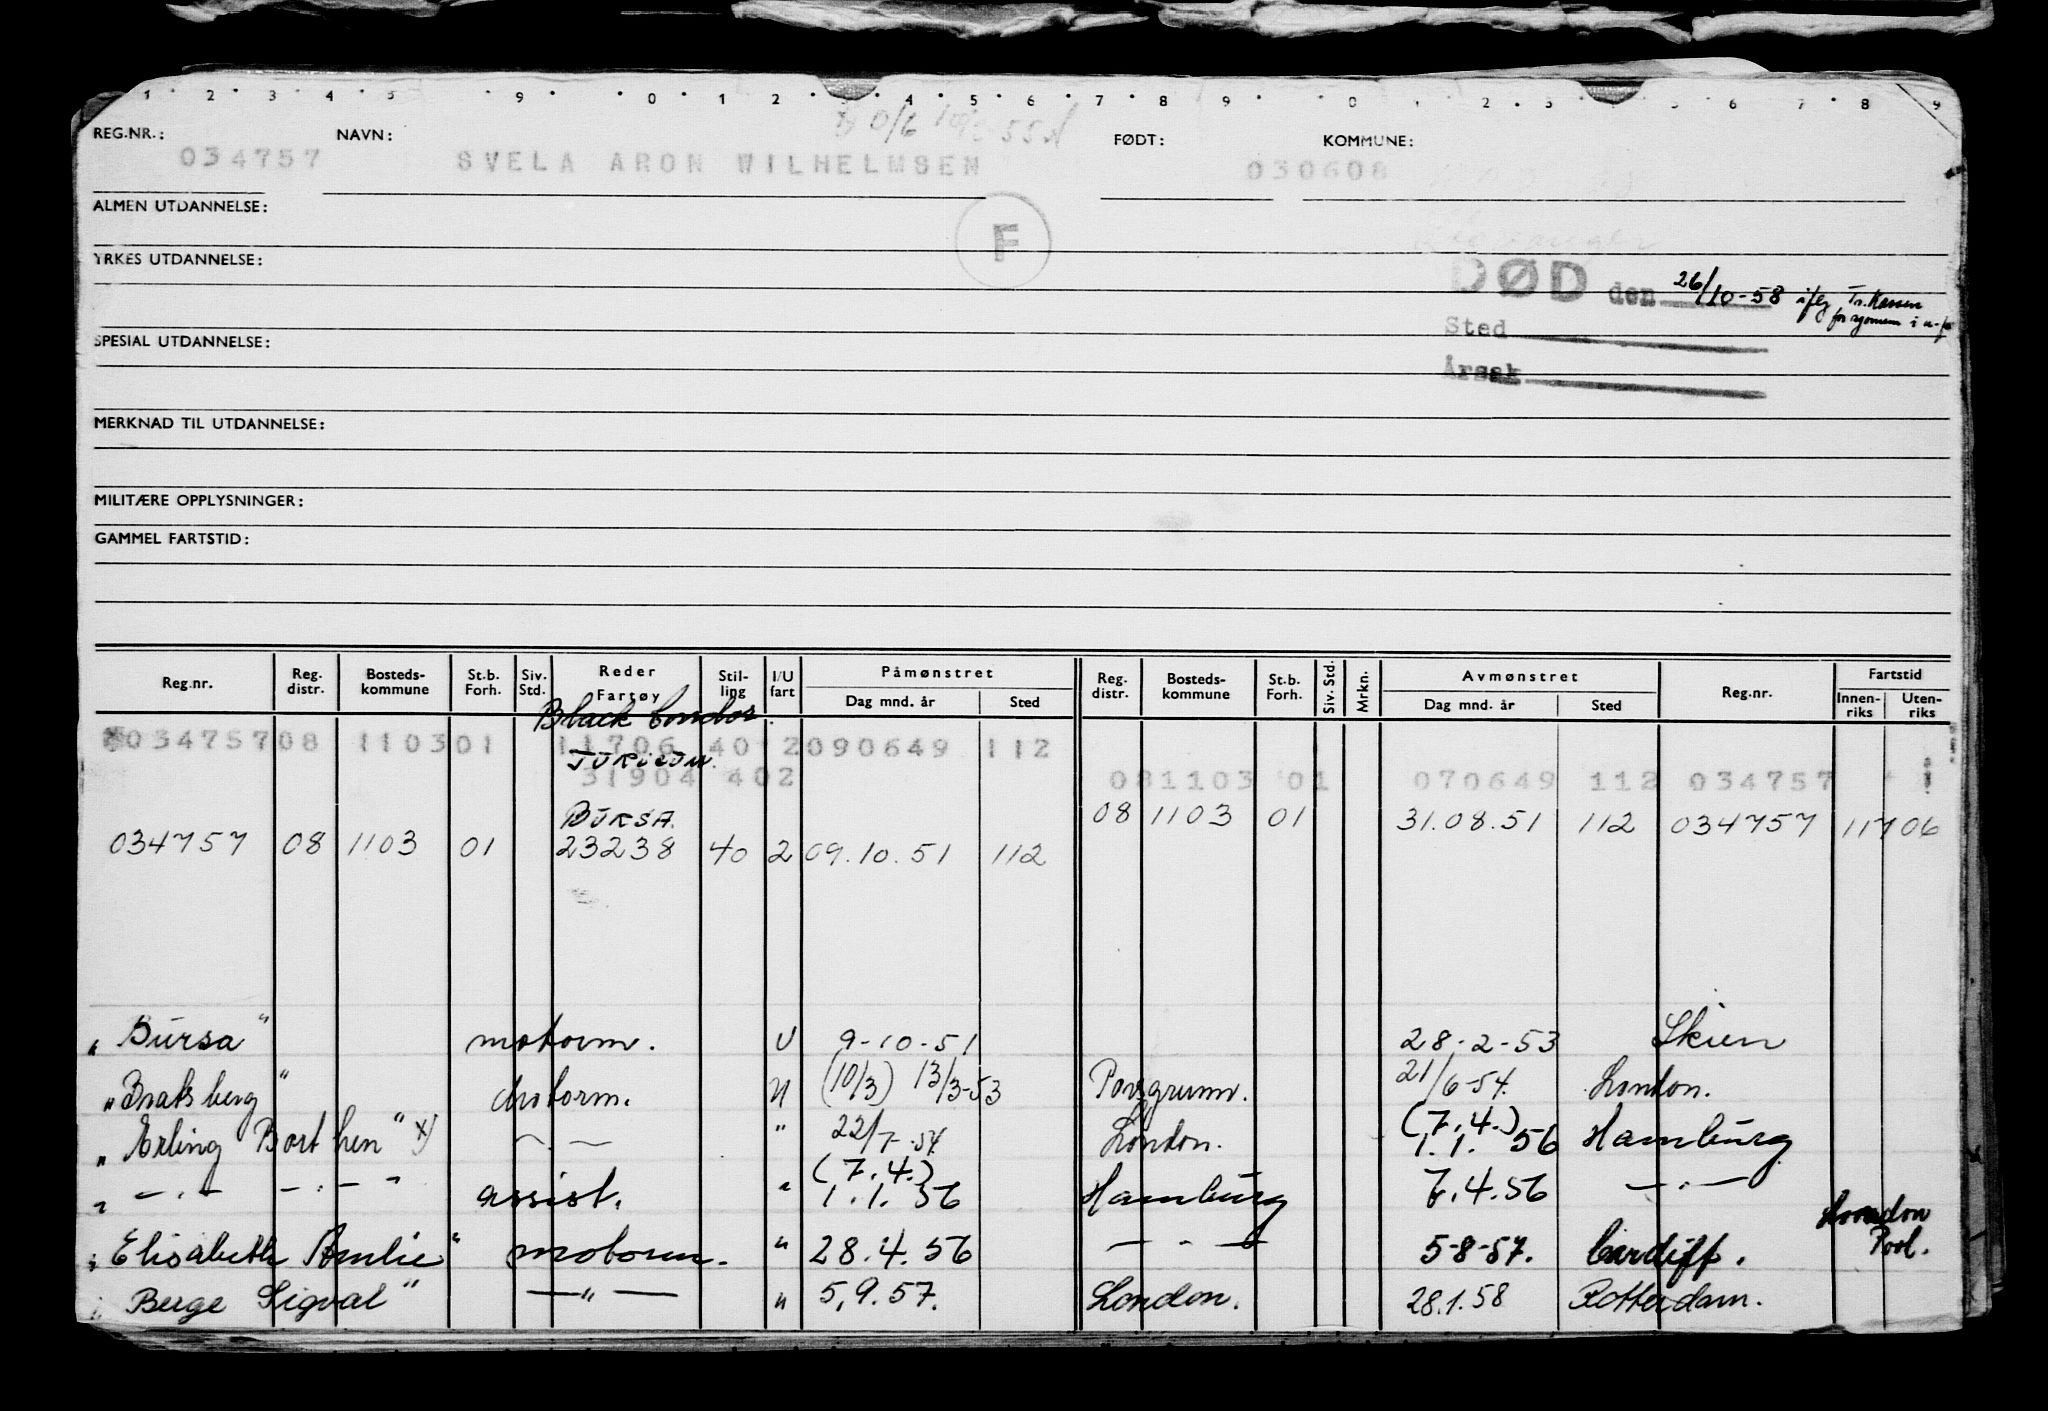 1 2 3 4 5 9 0 1 2 3 4 5 6 7 8 9 0 1 2 3 5 6 7 8 9
REG.NR.: NAVN: FØDT: KOMMUNE:
034757 SVELA ARON WILHELMSEN 030608
ALMEN UTDANNELSE:
F
YRKES UTDANNELSE:
DØD den 26/10-58 iføg Tr.Kassen
Sted
SPESIAL UTDANNELSE:
Årsak
MERKNAD TIL UTDANNELSE:
MILITÆRE OPPLYSNINGER:
GAMMEL FARTSTID:
Reg.nr. Reg. distr. Bosteds-kommune St.b. Forh. Siv. Std. Reder Fartøy Stil-ling I/U fart Påmønstret Dag mnd. år Sted Reg. distr. Bosteds-kommune St.b. Forh. Siv. Std. Mrkn. Avmønstret Dag mnd. år Sted Reg.nr. Fartstid Innen-riks Uten-riks
Black Condor
034757 08 1103 01 11706 40 2 090649 112
31904 402 081103 01 070649 112 034757
BURSA. 08 1103 01 31.08.51 112 034757 117 06
034757 08 1103 01 23238 40 2 09.10.51 112
"Bursa" motorm. U 9-10-51 28-2-53 Skien
"Bratsberg" motorm. " (10/3) 13/3-53 Porsgrunn. 21/6-54. London.
"Erling Borthen" x) — " — " 22/7-54. London. (7.4.) 1.1.56 Hamburg
" — . — — . — " assist. " (7.4.) 1.1.56 Hamburg 7.4.56 — " —
"Elisabeth Amlie" motorm. " 28.4.56 — " — 5-8-57. Cardiff. London Pool.
"Berge Sigval" — " — " 5.9.57. London. 28.1.58 Rotterdam.